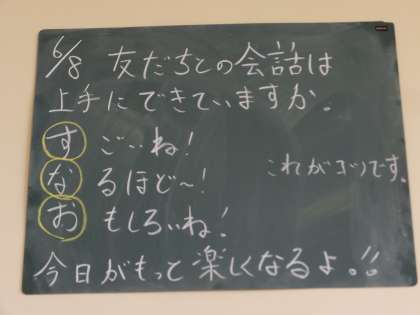 6/8 友だちとの会話は
上手にできていますか。
すごいね!
なるほど~!
おもしろいね!
これがコツです。
今日がもっと楽しくなるよ。!!